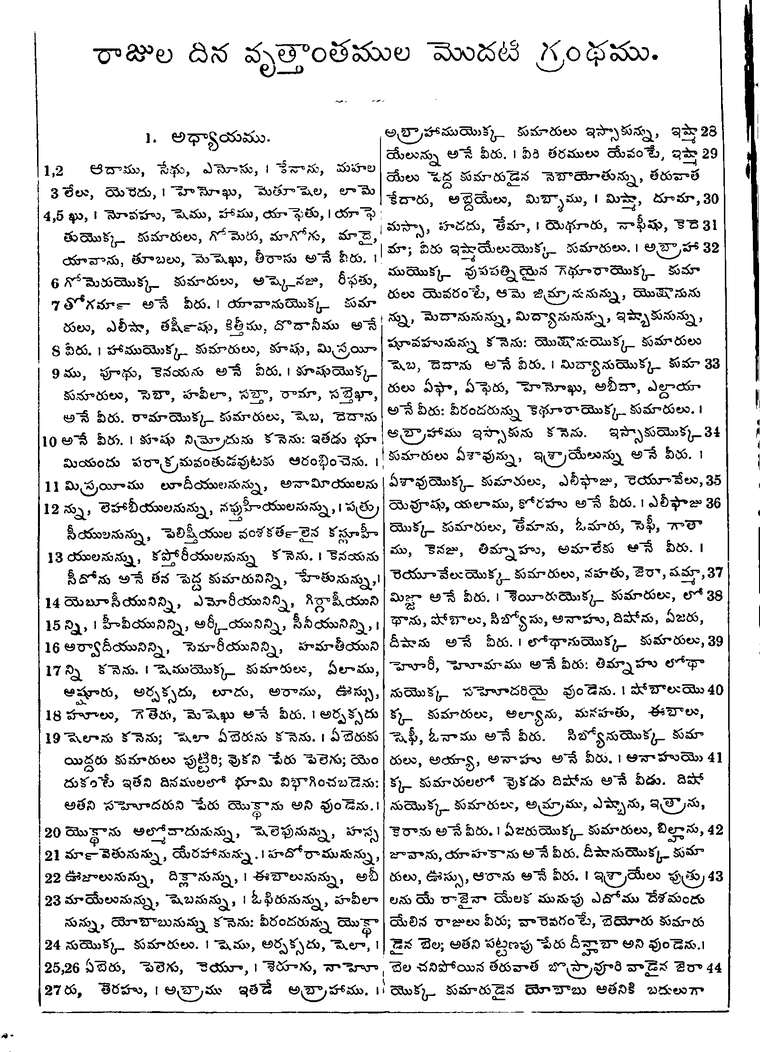 రాజుల దిన వృత్తాంతముల మొదటి గ్రంథము.
1. అధ్యాయము.
1,2 ఆదాము, సేథు, ఎనోసు, । కేనాను, మహల
3 లేలు, యెరెదు, । హెనోఖు, మెతూషెల, లామె
4,5 ఖు, । నోవహు, షెము, హాము, యాఫెతు, । యాఫె
తుయొక్క కుమారులు, గోమెరు, మాగోగు, మాదై,
యావాను, తూబలు, మెషెఖు, తీరాసు అనే వీరు. ।
6 గోమెరుయొక్క కుమారులు, అష్కెనజు, రీఫతు,
7 తోగర్మా అనే వీరు. । యావానుయొక్క కుమా
రులు, ఎలీషా, తర్షీషు, కిత్తీము, దొదానీము అనే
8 వీరు. । హాముయొక్క కుమారులు, కూషు, మిస్రయీ
9 ము, పూథు, కెనయను అనే వీరు. । కూషుయొక్క
కుమారులు, సెబా, హవీలా, సబ్తా, రామా, సబ్తెఖా,
అనే వీరు. రామాయొక్క కుమారులు, షెబ, దెదాను
10 అనే వీరు. । కూషు నిమ్రోదును కనెను: ఇతడు భూ
మియందు పరాక్రమవంతుడవుటకు ఆరంభించెను. ।
11 మిస్రయీము లూదీయులనున్ను, అనామీయులను
12 న్ను, లెహాబీయులనున్ను, నఫ్తుహీయులనున్ను, । పత్రు
సీయులనున్ను, పెలిష్తీయుల వంశకర్తలైన కస్లూహీ
13 యులనున్ను, కప్తోరీయులనున్ను కనెను. । కెనయను
సీదోను అనే తన పెద్ద కుమారునిన్ని, హేతునున్ను, ।
14 యెబూసీయునిన్ని, ఎమోరీయునిన్ని, గిర్గాషీయుని
15 న్ని, । హీవీయునిన్ని, అర్కీయునిన్ని, సీనీయునిన్ని, ।
16 అర్వాదీయునిన్ని, సెమారీయునిన్ని, హమాతీయుని
17 న్ని కనెను. । షెముయొక్క కుమారులు, ఏలాము,
అష్షూరు, అర్పక్సదు, లూదు, అరాము, ఊస్సు,
18 హూలు, గెతెరు, మెషెఖు అనే వీరు. । అర్పక్సదు
19 షెలాను కనెను; షెలా ఏబెరును కనెను. । ఏబెరుకు
యిద్దరు కుమారులు పుట్టిరి; వొకని పేరు పెలెగు; యెం
దుకంటే ఇతని దినములలో భూమి విభాగించబడెను:
అతని సహోదరుని పేరు యొక్థాను అని వుండెను. ।
20 యొక్థాను అల్మోదాదునున్ను, షెలెఫునున్ను, హస్స
21 ర్మావెతునున్ను, యేరహానున్ను. । హదోరామునున్ను,
22 ఊజాలునున్ను, దిక్లానున్ను, । ఈబాలునున్ను, అబీ
23 మాయేలునున్ను, షెబనున్ను, । ఓఫిరునున్ను, హవీలా
నున్ను, యోబాబునున్ను కనెను: వీరందరున్ను యొక్థా
24 నుయొక్క కుమారులు. । షెము, అర్పక్సదు, షెలా, ।
25,26 ఏబెరు, పెలెగు, రెయూ, । శెరూగు, నాహో
27 రు, తెరహు, । అబ్రాము ఇతడే అబ్రాహాము. ।
అబ్రాహాముయొక్క కుమారులు ఇస్సాకున్ను, ఇష్మా 28
యేలున్ను అనే వీరు. । వీరి తరములు యేవంటే, ఇష్మా 29
యేలు పెద్ద కుమారుడైన నెబాయోతున్ను, తరువాత
కేదారు, అబ్దెయేలు, మిబ్శాము, । మిష్మా, దూమా, 30
మస్సా, హదదు, తేమా, । యెథూరు, నాఫీషు, కెదె 31
మా; వీరు ఇష్మాయేలుయొక్క కుమారులు. । అబ్రాహా 32
ముయొక్క వుపపత్నియైన గెథూరాయొక్క కుమా
రులు యెవరంటే, ఆమె జిమ్రానునున్ను, యొషానును
న్ను, మెదానునున్ను, మిద్యానునున్ను, ఇష్బాకునున్ను,
షూవహునున్ను కనెను: యొషానుయొక్క కుమారులు
షెబ, దెదాను అనే వీరు. । మిద్యానుయొక్క కుమా 33
రులు ఏఫా, ఏఫెరు, హెనోఖు, అబీదా, ఎల్దాయా
అనే వీరు: వీరందరున్ను కెథూరాయొక్క కుమారులు. ।
అబ్రాహాము ఇస్సాకును కనెను. ఇస్సాకుయొక్క 34
కుమారులు ఏశావున్ను, ఇశ్రాయేలున్ను అనే వీరు. ।
ఏశావుయొక్క కుమారులు, ఎలీఫాజు, రెయూవేలు, 35
యెవూషు, యలాము, కోరహు అనే వీరు. । ఎలీఫాజు 36
యొక్క కుమారులు, తేమాను, ఓమారు, సెఫీ, గాతా
ము, కెనజు, తిమ్నాహు, అమాలేకు అనే వీరు. ।
రెయూవేలుయొక్క కుమారులు, నహతు, జెరా, షమ్మా, 37
మిజ్జా అనే వీరు. । శెయీరుయొక్క కుమారులు, లో 38
థాను, షోబాలు, సిబ్యోను, అనాహు, దిషోను, ఏజరు,
దీషాను అనే వీరు. । లోథానుయొక్క కుమారులు, 39
హోరీ, హోమాము అనే వీరు: తిమ్నాహు లోథా
నుయొక్క సహోదరియై వుండెను. । షోబాలుయొ 40
క్క కుమారులు, అల్యాను, మనహతు, ఈబాలు,
షెఫీ, ఓనాము అనే వీరు. సిబ్యోనుయొక్క కుమా
రులు, అయ్యా, అనాహు అనే వీరు. । అనాహుయొ 41
క్క కుమారులలో వొకడు దిషోను అనే వీడు. దిషో
నుయొక్క కుమారులు, అమ్రాము, ఎష్బాను, ఇత్రాను,
కెరాను అనే వీరు. । ఏజరుయొక్క కుమారులు, బిల్హాను, 42
జావాను, యాహకాను అనే వీరు. దీషానుయొక్క కుమా
రులు, ఊస్సు, ఆరాను అనే వీరు. । ఇశ్రాయేలు పుత్రు 43
లను యే రాజైనా యేలక మునుపు ఎదోము దేశమందు
యేలిన రాజులు వీరు; వారెవరంటే, బెయోరు కుమారు
డైన బెల; అతని పట్టణపు పేరు దీన్హాబా అని వుండెను. ।
బెల చనిపోయిన తరువాత బొస్రావూరి వాడైన జెరా 44
యొక్క కుమారుడైన యోబాబు అతనికి బదులుగా